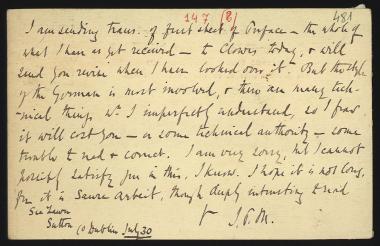 147 (8)
481
I am sending trans. of first sheet of Preface — the whole of
what I have as yet received — to Clowes today, & will
send you revise when I have looked over it. But the style
of the German is most involved, & there are many tech-
-nical things wh I imperfectly understand, so I fear
it will cost you — or some technical authority — some
trouble to read & correct. I am very sorry, but I cannot
possibly satisfy you in this, I know. I hope it is not long,
for it is Saure Arbeit, though deeply interesting to read
Sutton
Co Dublin July 30